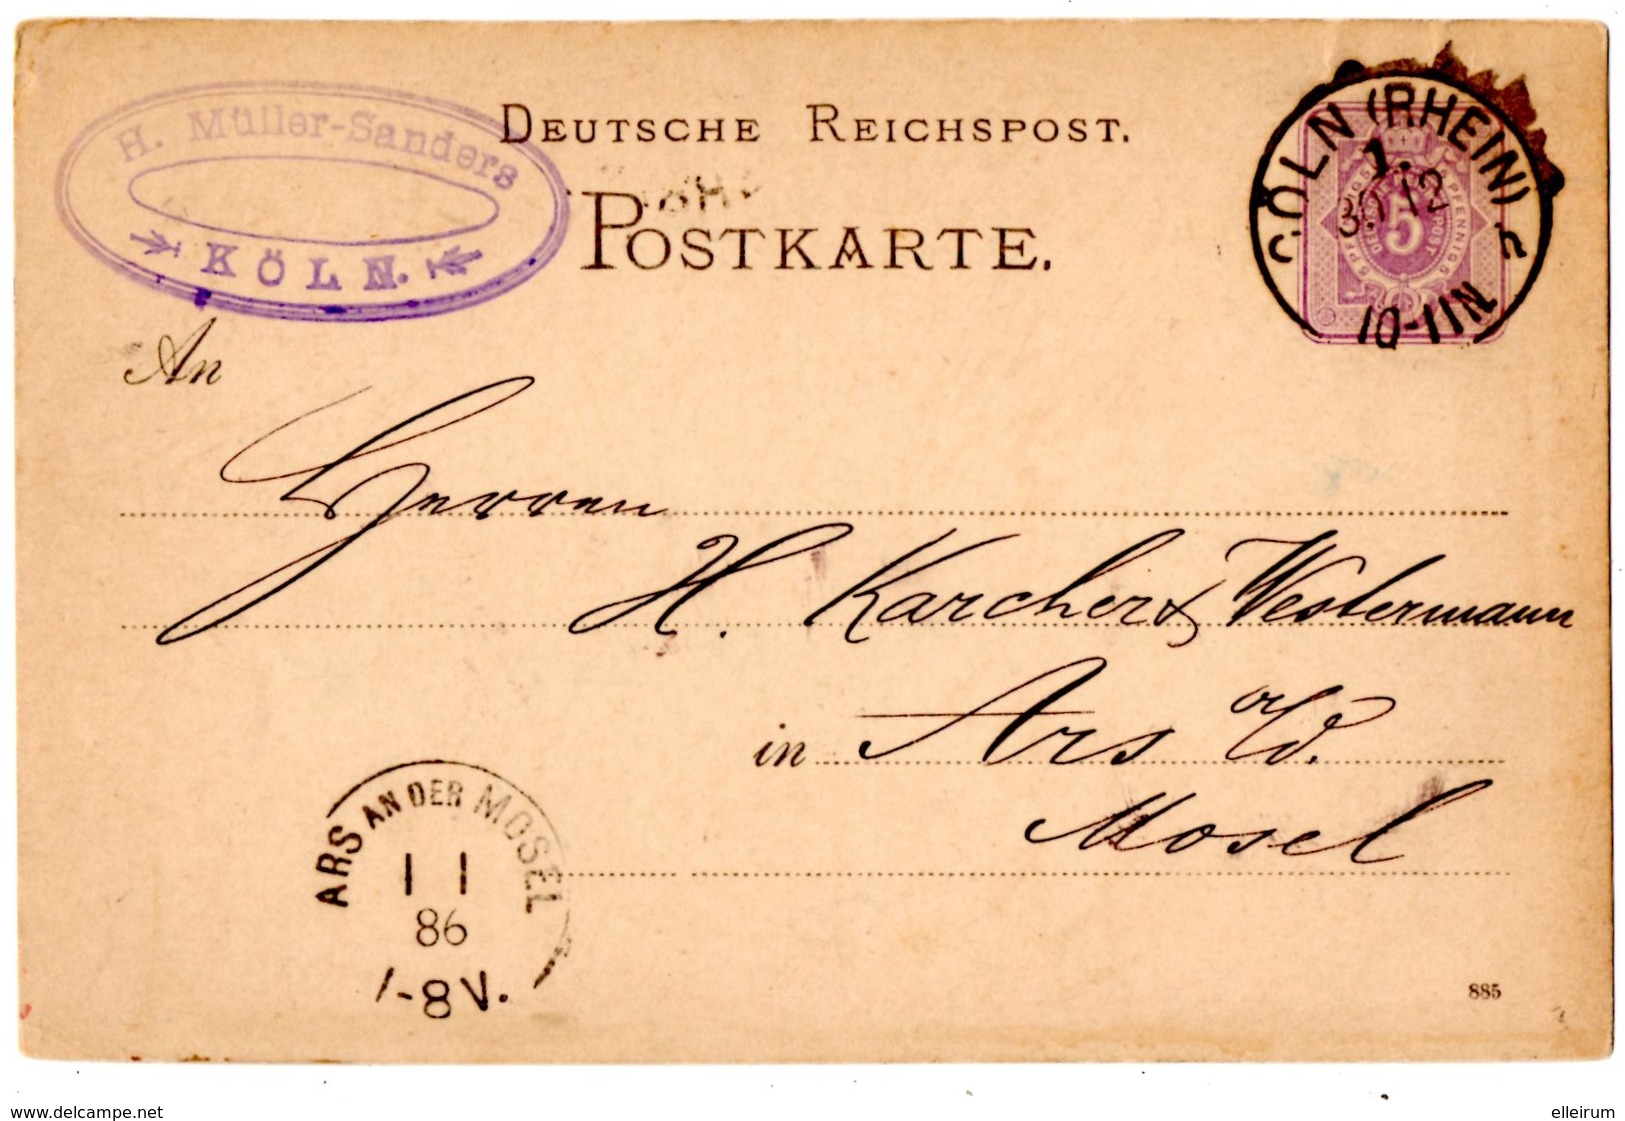 H. Müller-Sanders
KÖLN.
DEUTSCHE REICHSPOST.
POSTKARTE.
CÖLN (RHEIN)
1.
30 12
10-11N
5
An
Herren
H. Karcher & Westermann
in Ars a/d.
Mosel
ARS AN DER MOSEL
1 1
86
7-8V.
885
www.delcampe.net
elleirum